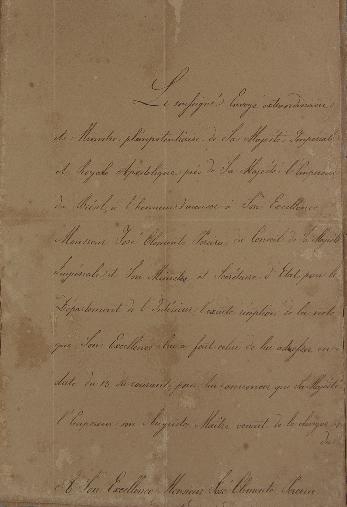 Le soussigné Envoyé extraordinaire
et Ministre plénipotentiaire de Sa Majesté Impériale
et Royale Apostolique près de Sa Majesté l'Empereur
du Brésil, a l'honneur d'accuser à Son Excellence
Monsieur José Clemente Pereira, du Conseil de Sa Majesté
Impériale et Son Ministre et Secrétaire d'Etat pour le
Département de l'Intérieur, l'exacte réception de la note
que Son Excellence lui a fait celui de lui adresser en
date du 13 du courant, pour lui annoncer que Sa Majesté
l'Empereur son Auguste Maître venait de le charger
du
A Son Excellence Monsieur José Clemente Pereira